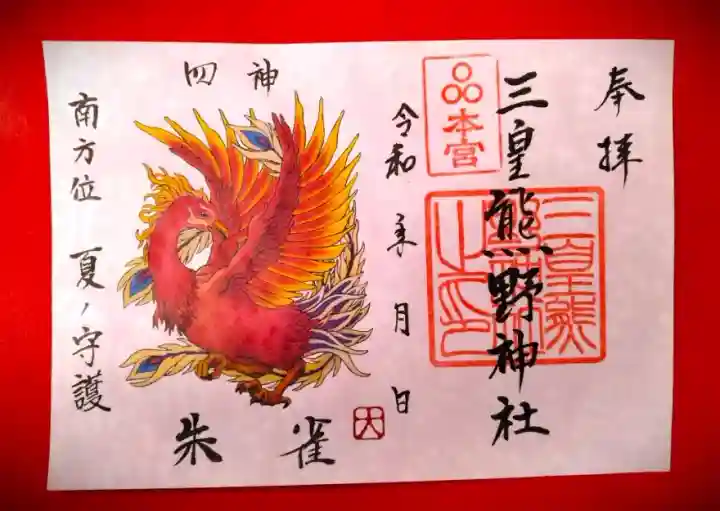 奉拝
三皇熊野神社
本宮
三皇熊
之印
令和 年 月 日
四神
南方位 夏ノ守護
朱雀
大